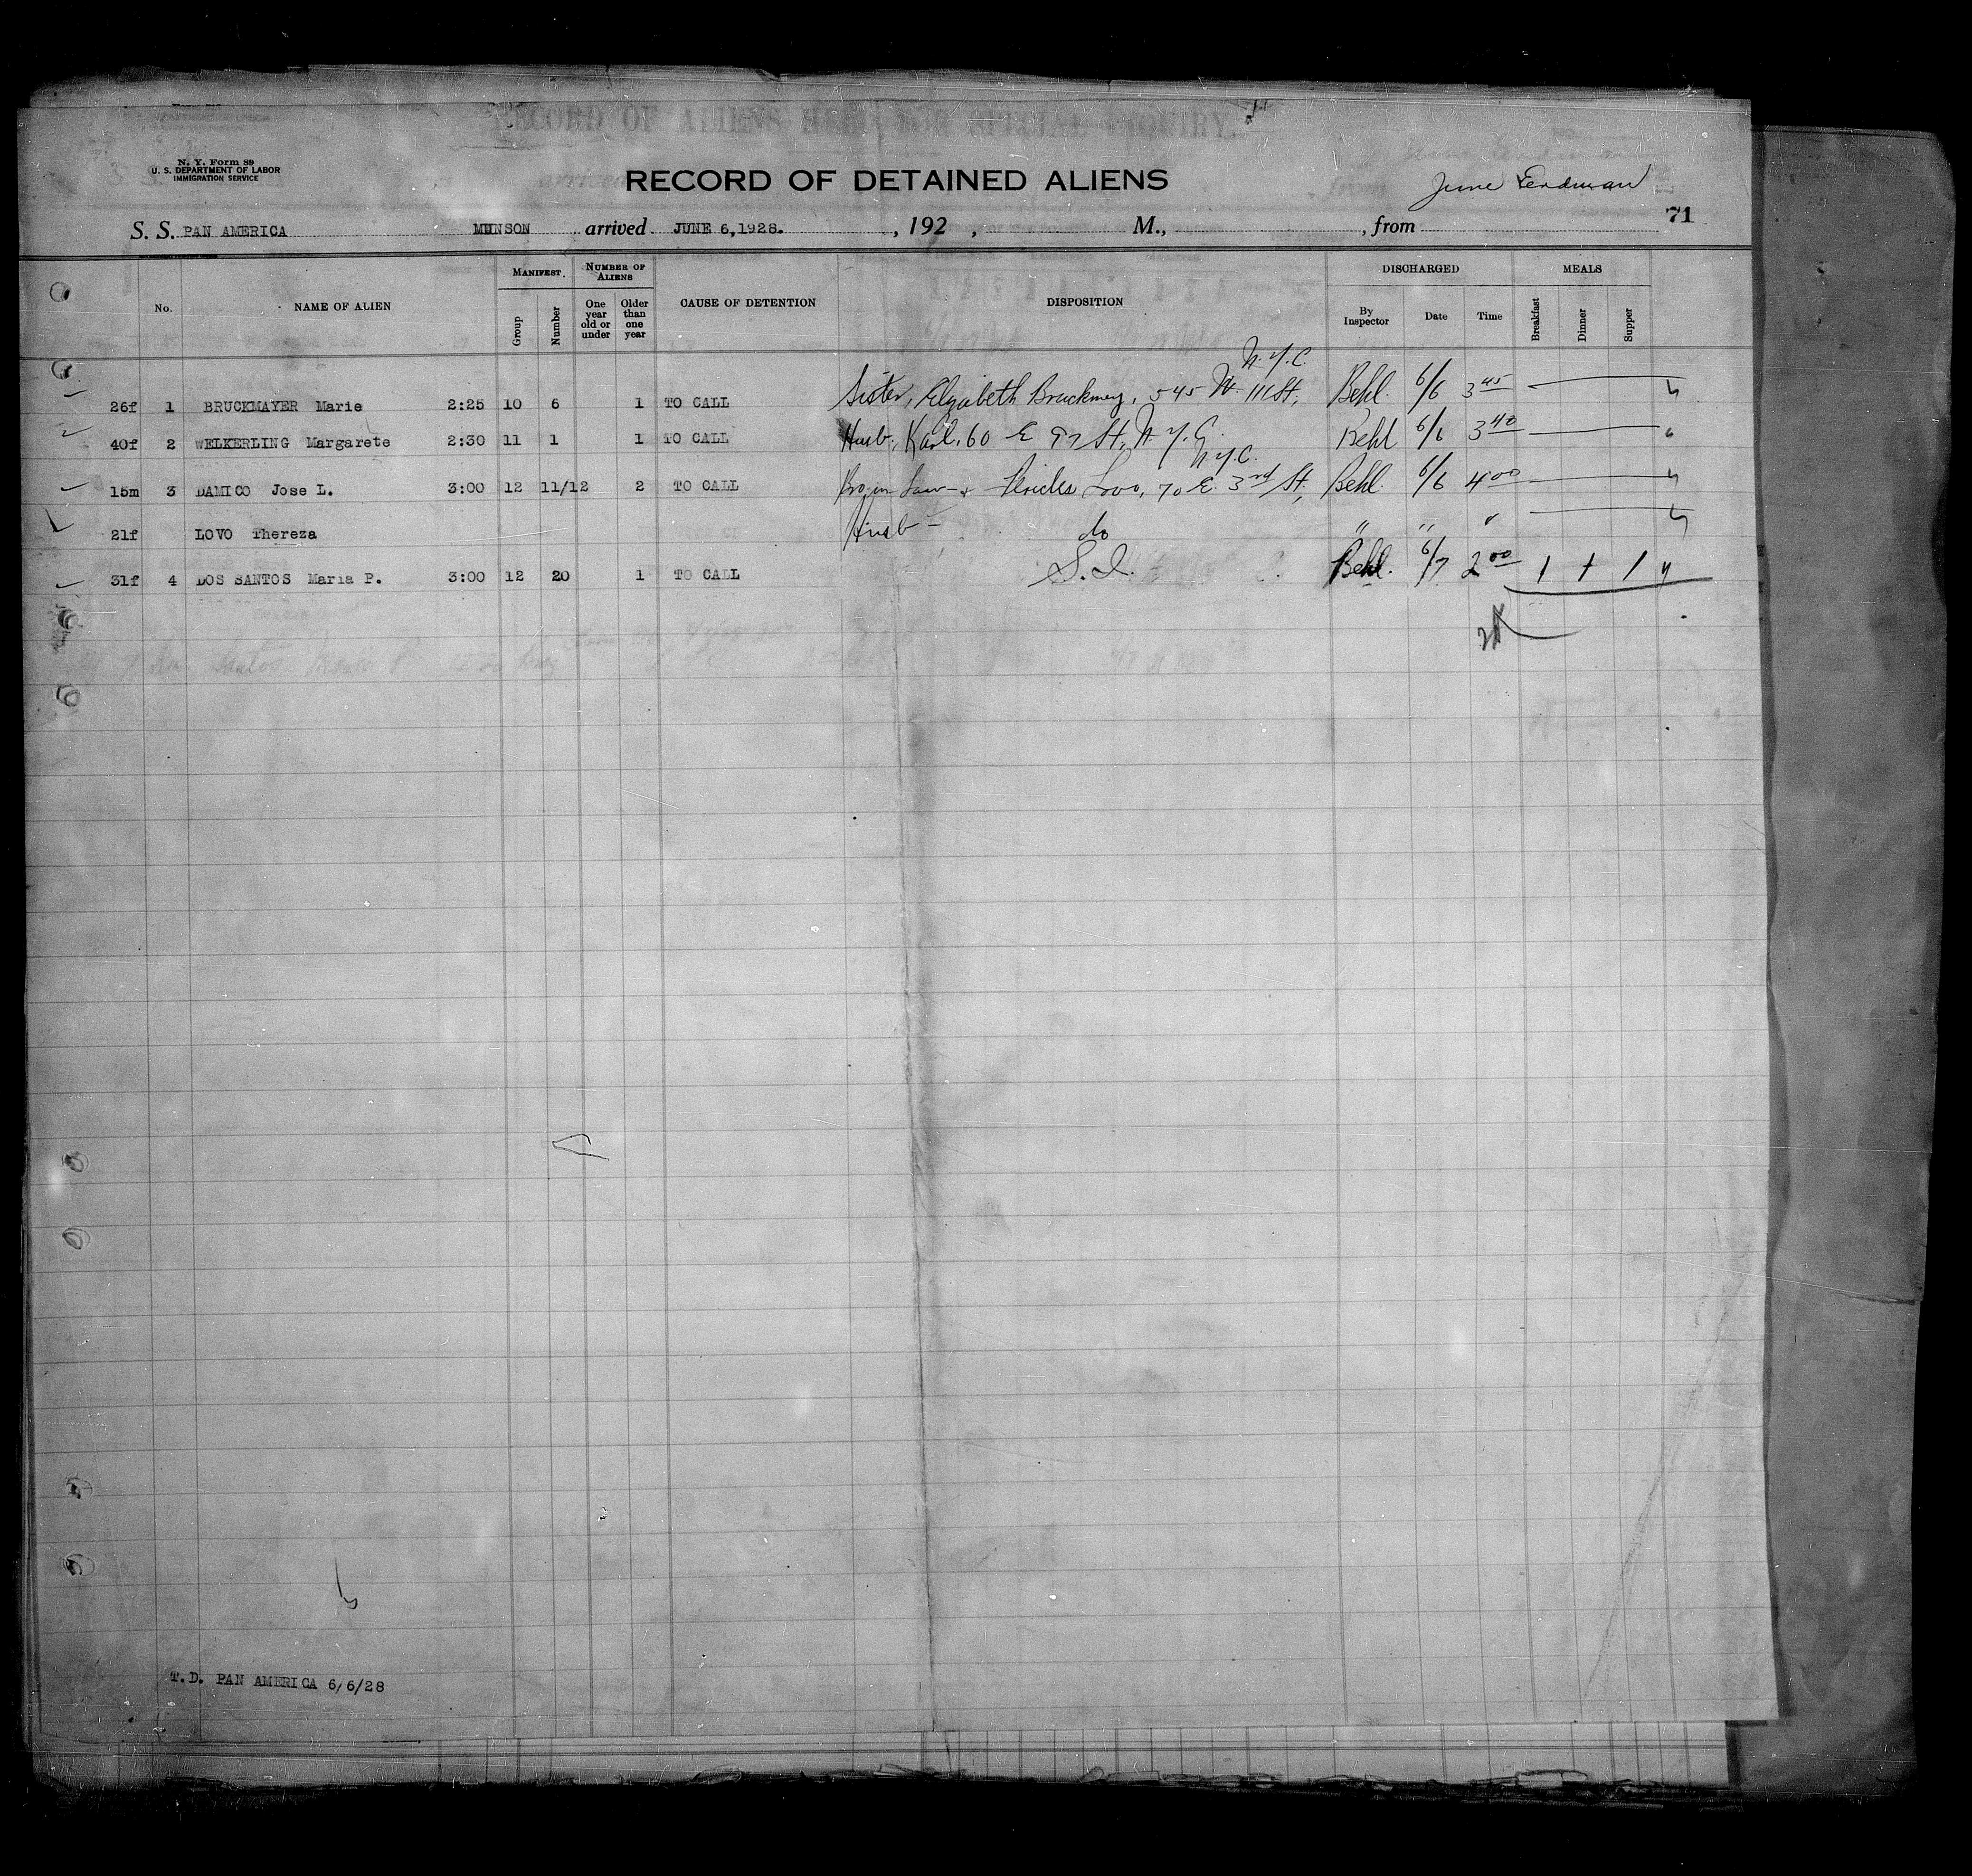 RECORD OF ALIENS HELD FOR SPECIAL INQUIRY.
N. Y. Form 89
U. S. DEPARTMENT OF LABOR
IMMIGRATION SERVICE
RECORD OF DETAINED ALIENS
June
71
S. S. PAN AMERICA MUNSON arrived JUNE 6,1928. , 192 , M., , from
No. NAME OF ALIEN MANIFEST. Group Number NUMBER OF ALIENS One year old or under Older than one year CAUSE OF DETENTION DISPOSITION DISCHARGED By Inspector Date Time MEALS Breakfast Dinner Supper
N.Y.C.
26f 1 BRUCKMAYER Marie 2:25 10 6 1 TO CALL Sister, Elizabeth Bruckmey, 545 W. 111 St, Behl. 6/6 3 45
40f 2 WELKERLING Margarete 2:30 11 1 1 TO CALL Husb, Karl, 60 E 97 St, N.Y.C. Behl 6/6 3 40
N.Y.C.
15m 3 DAMICO Jose L. 3:00 12 11/12 2 TO CALL Bro in Law - Lovo, 70 E. 3rd St, Behl. 6/6 4 00
21f LOVO Thereza Husb - do " " "
31f 4 DOS SANTOS Maria P. 3:00 12 20 1 TO CALL S.I. Behl. 6/7 2 00 1 1 1
T.D. PAN AMERICA 6/6/28